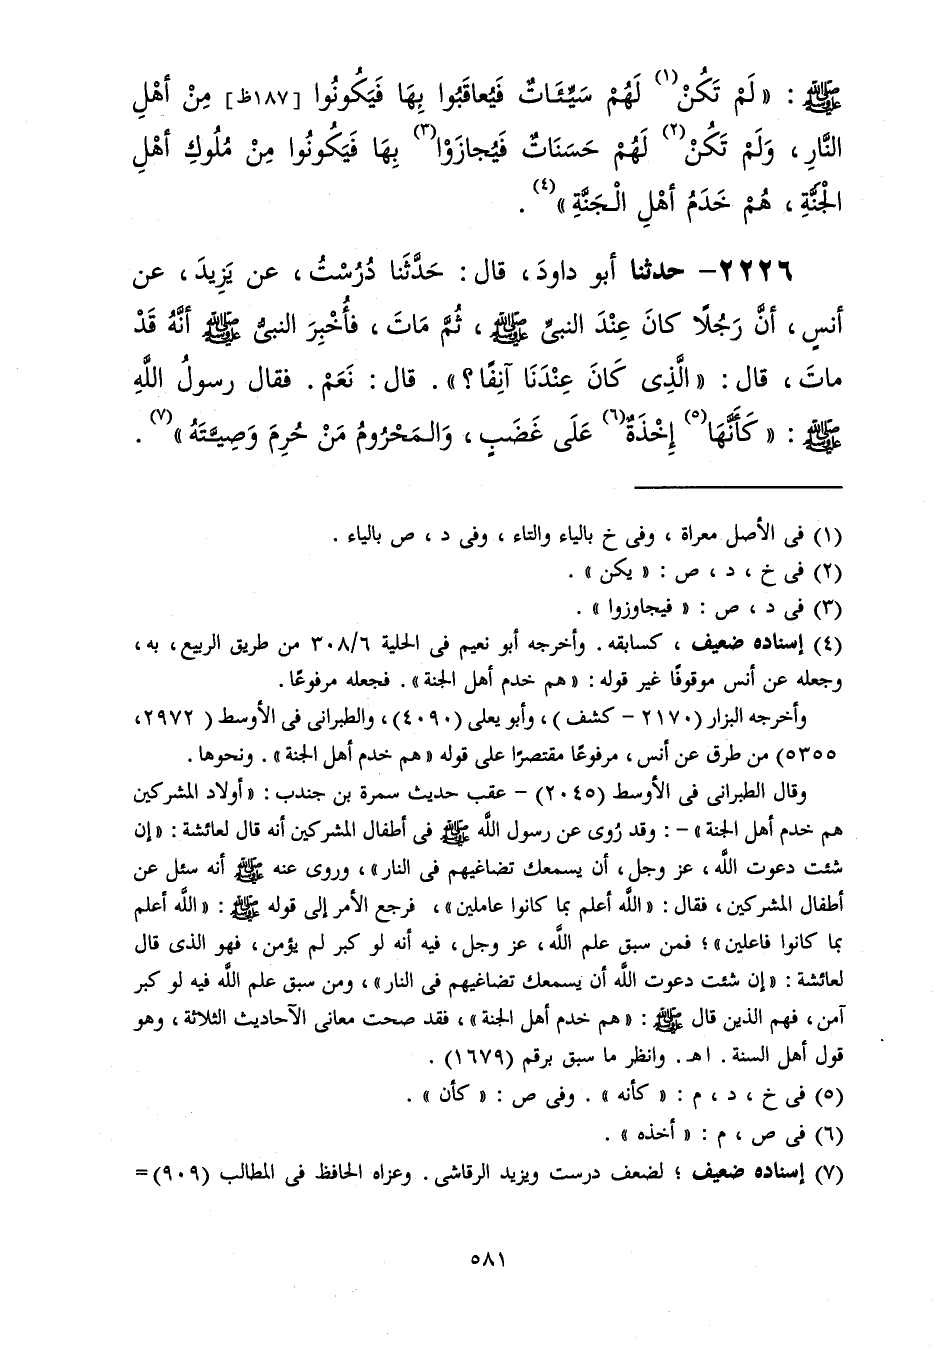 ﷺ : « لَمْ تَكُنْ(١) لَهُمْ سَيِّئَاتٌ فَيُعاقَبُوا بِهَا فَيَكُونُوا [١٨٧ظ] مِنْ أَهْلِ
النَّارِ ، وَلَمْ تَكُنْ(٢) لَهُمْ حَسَنَاتٌ فَيُجازَوْا(٣) بِهَا فَيَكُونُوا مِنْ مُلُوكِ أَهْلِ
الْجَنَّةِ ، هُمْ خَدَمُ أَهْلِ الْجَنَّةِ »(٤) .
٢٢٢٦- حدثنا أبو داودَ ، قال : حَدَّثَنا دُرُسْتُ ، عن يَزِيدَ ، عن
أنسٍ ، أنَّ رَجُلًا كانَ عِنْدَ النبىِّ ﷺ ، ثُمَّ مَاتَ ، فأُخْبِرَ النبىُّ ﷺ أنَّهُ قَدْ
ماتَ ، قال : « الَّذِى كَانَ عِنْدَنَا آنِفًا ؟ » . قال : نَعَمْ . فقال رسولُ اللَّهِ
ﷺ : « كَأَنَّهَا(٥) إِخْذَةٌ(٦) عَلَى غَضَبٍ ، وَالمَحْرُومُ مَنْ حُرِمَ وَصِيَّتَهُ »(٧) .
(١) فى الأصل معراة ، وفى خ بالياء والتاء ، وفى د ، ص بالياء .
(٢) فى خ ، د ، ص : « يكن » .
(٣) فى د ، ص : « فيجاوزوا » .
(٤) إسناده ضعيف ، كسابقه . وأخرجه أبو نعيم فى الحلية ٣٠٨/٦ من طريق الربيع ، به ،
وجعله عن أنس موقوفًا غير قوله : « هم خدم أهل الجنة » . فجعله مرفوعًا .
وأخرجه البزار (٢١٧٠ - كشف ) ، وأبو يعلى (٤٠٩٠) ، والطبرانى فى الأوسط ( ٢٩٧٢ ،
٥٣٥٥) من طرق عن أنس ، مرفوعًا مقتصرًا على قوله « هم خدم أهل الجنة » . ونحوها .
وقال الطبرانى فى الأوسط (٢٠٤٥) - عقب حديث سمرة بن جندب : « أولاد المشركين
هم خدم أهل الجنة » - : وقد رُوى عن رسول اللَّه ﷺ فى أطفال المشركين أنه قال لعائشة : « إن
شئت دعوت اللَّه ، عز وجل ، أن يسمعك تضاغيهم فى النار » ، وروى عنه ﷺ أنه سئل عن
أطفال المشركين ، فقال : « اللَّه أعلم بما كانوا عاملين » ، فرجع الأمر إلى قوله ﷺ : « اللَّه أعلم
بما كانوا فاعلين » ؛ فمن سبق علم اللَّه ، عز وجل ، فيه أنه لو كبر لم يؤمن ، فهو الذى قال
لعائشة : « إن شئت دعوت اللَّه أن يسمعك تضاغيهم فى النار » ، ومن سبق علم اللَّه فيه لو كبر
آمن ، فهم الذين قال ﷺ : « هم خدم أهل الجنة » ، فقد صحت معانى الآحاديث الثلاثة ، وهو
قول أهل السنة . اهـ . وانظر ما سبق برقم (١٦٧٩) .
(٥) فى خ ، د ، م : « كأنه » . وفى ص : « كأن » .
(٦) فى ص ، م : « أخذه » .
(٧) إسناده ضعيف ؛ لضعف درست ويزيد الرقاشى . وعزاه الحافظ فى المطالب (٩٠٩)=
٥٨١